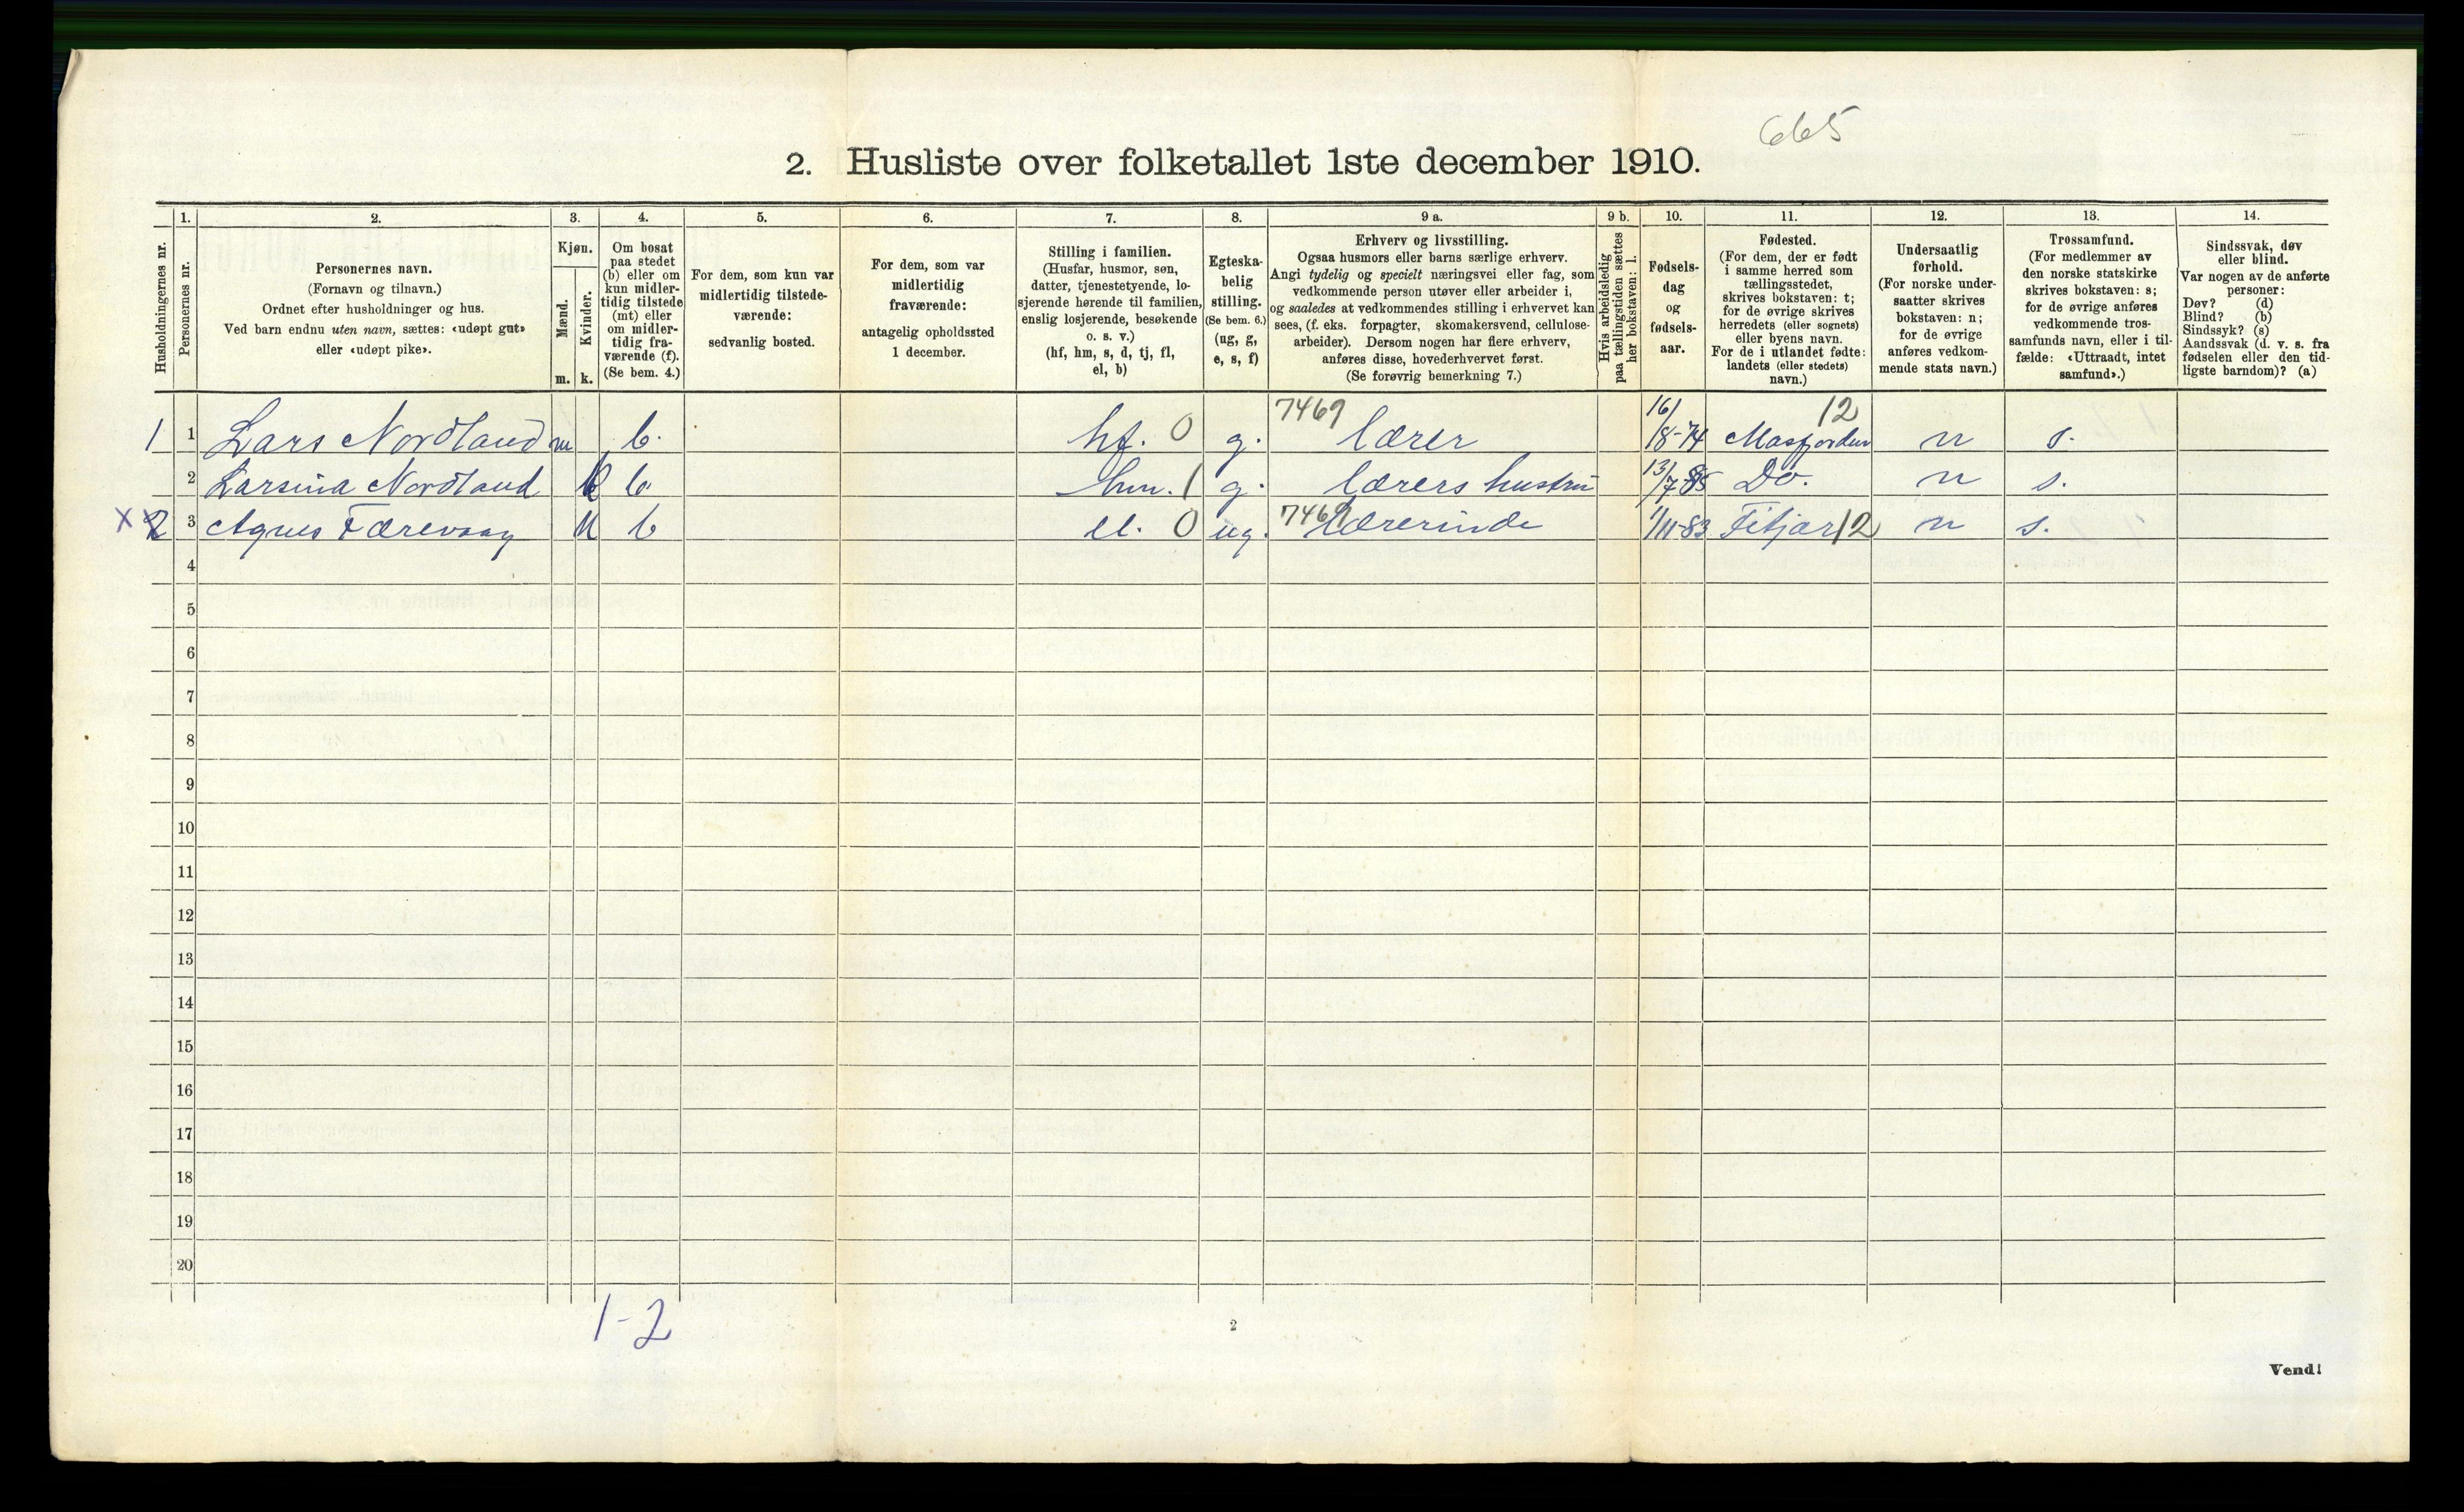 665
2. Husliste over folketallet 1ste december 1910.
1. 2. 3. 4. 5. 6. 7. 8. 9 a. 9 b. 10. 11. 12. 13. 14.
Husholdningernes nr.
Personernes nr.
Personernes navn.
(Fornavn og tilnavn.)
Ordnet efter husholdninger og hus.
Ved barn endnu uten navn, sættes: «udøpt gut»
eller «udøpt pike».
Kjøn.
Mænd.
Kvinder.
m. k.
Om bosat
paa stedet
(b) eller om
kun midler-
tidig tilstede
(mt) eller
om midler-
tidig fra-
værende (f).
(Se bem. 4.)
For dem, som kun var
midlertidig tilstede-
værende:
sedvanlig bosted.
For dem, som var
midlertidig
fraværende:
antagelig opholdssted
1 december.
Stilling i familien.
(Husfar, husmor, søn,
datter, tjenestetyende, lo-
sjerende hørende til familien,
enslig losjerende, besøkende
o. s. v.)
(hf, hm, s, d, tj, fl,
el, b)
Egteska-
belig
stilling.
(Se bem. 6.)
(ug, g,
e, s, f)
Erhverv og livsstilling.
Ogsaa husmors eller barns særlige erhverv.
Angi tydelig og specielt næringsvei eller fag, som
vedkommende person utøver eller arbeider i,
og saaledes at vedkommendes stilling i erhvervet kan
sees, (f. eks. forpagter, skomakersvend, cellulose-
arbeider). Dersom nogen har flere erhverv,
anføres disse, hovederhvervet først.
(Se forøvrig bemerkning 7.)
Hvis arbeidsledig
paa tællingstiden sættes
her bokstaven: l.
Fødsels-
dag
og
fødsels-
aar.
Fødested.
(For dem, der er født
i samme herred som
tællingsstedet,
skrives bokstaven: t;
for de øvrige skrives
herredets (eller sognets)
eller byens navn.
For de i utlandet fødte:
landets (eller stedets)
navn.)
Undersaatlig
forhold.
(For norske under-
saatter skrives
bokstaven: n;
for de øvrige
anføres vedkom-
mende stats navn.)
Trossamfund.
(For medlemmer av
den norske statskirke
skrives bokstaven: s;
for de øvrige anføres
vedkommende tros-
samfunds navn, eller i til-
fælde: «Uttraadt, intet
samfund».)
Sindssvak, døv
eller blind.
Var nogen av de anførte
personer:
Døv? (d)
Blind? (b)
Sindssyk? (s)
Aandssvak (d. v. s. fra
fødselen eller den tid-
ligste barndom)? (a)
1 1 Lars Nordland m b. hf. 0 g. 7469 lærer 16/8-74 Masfjorden 12 n s.
2 Larsina Nordland k b. hm. 1 g. lærers hustru 13/7-85 Do. n s.
x 2 3 Agnes Færevaag k b el. 0 ug. 7469 lærerinde 1/11-83 Fitjar 12 n s.
4
5
6
7
8
9
10
11
12
13
14
15
16
17
18
19
20
1-2
2
Vend!